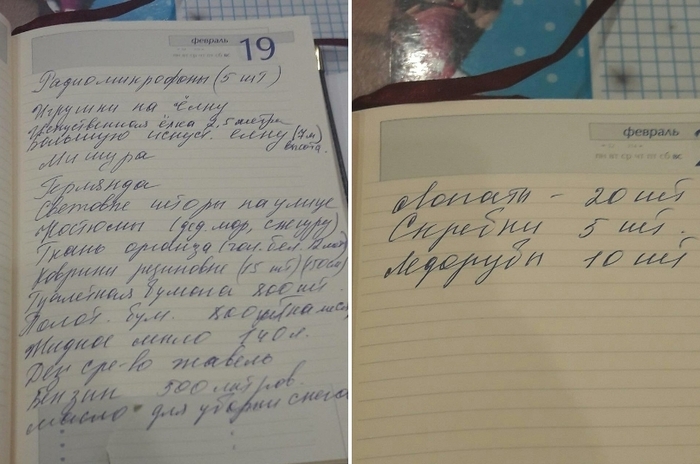 февраль 19
Радиомикрофоны (5 шт)
Игрушки на ёлку
Искусственная ёлка 2,5 метра
Большую искус. елку (7м)
высота.
Мишура
Гермянда
Световые шторы на улице
Костюмы (дед мор, снегур)
Ткань органза (гол. бел.
Коврики резиновые (15 шт) (150см)
Туалетная бумага 800 шт.
Полот. бум. 800 шт на мес
Жидкое мыло 140 л.
Дез ср-во жавель
Бензин 500 литров.
масло для уборки снега
февраль
пн вт ср чт пт сб вс
Лопаты - 20 шт
Скребки 5 шт.
Ледорубы 10 шт